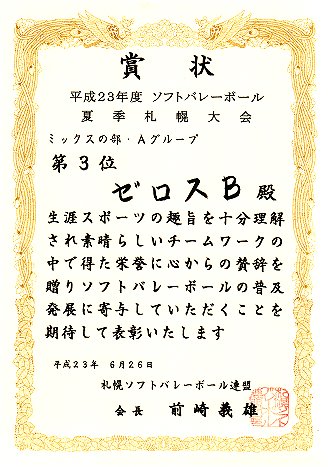 賞状
平成23年度 ソフトバレーボール
夏季札幌大会
ミックスの部・Aグループ
第3位
ゼロスB 殿
生涯スポーツの趣旨を十分理解
され素晴らしいチームワークの
中で得た栄誉に心からの賛辞を
贈りソフトバレーボールの普及
発展に寄与していただくことを
期待して表彰いたします
平成23年 6月26日
札幌ソフトバレーボール連盟
会長 前崎義雄